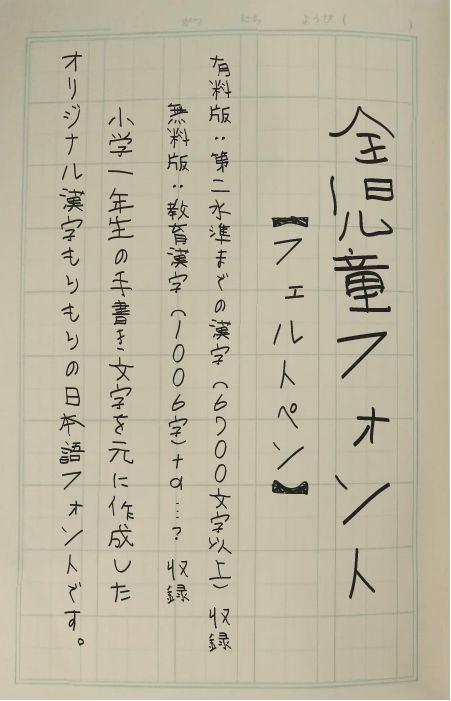 がつ にち ようび（ ）
全児童フォント
【フェルトペン】
有料版：第二水準までの漢字（6700文字以上）収録
無料版：教育漢字（1006字）+α…？収録
小学一年生の手書き文字を元に作成した
オリジナル漢字もりもりの日本語フォントです。